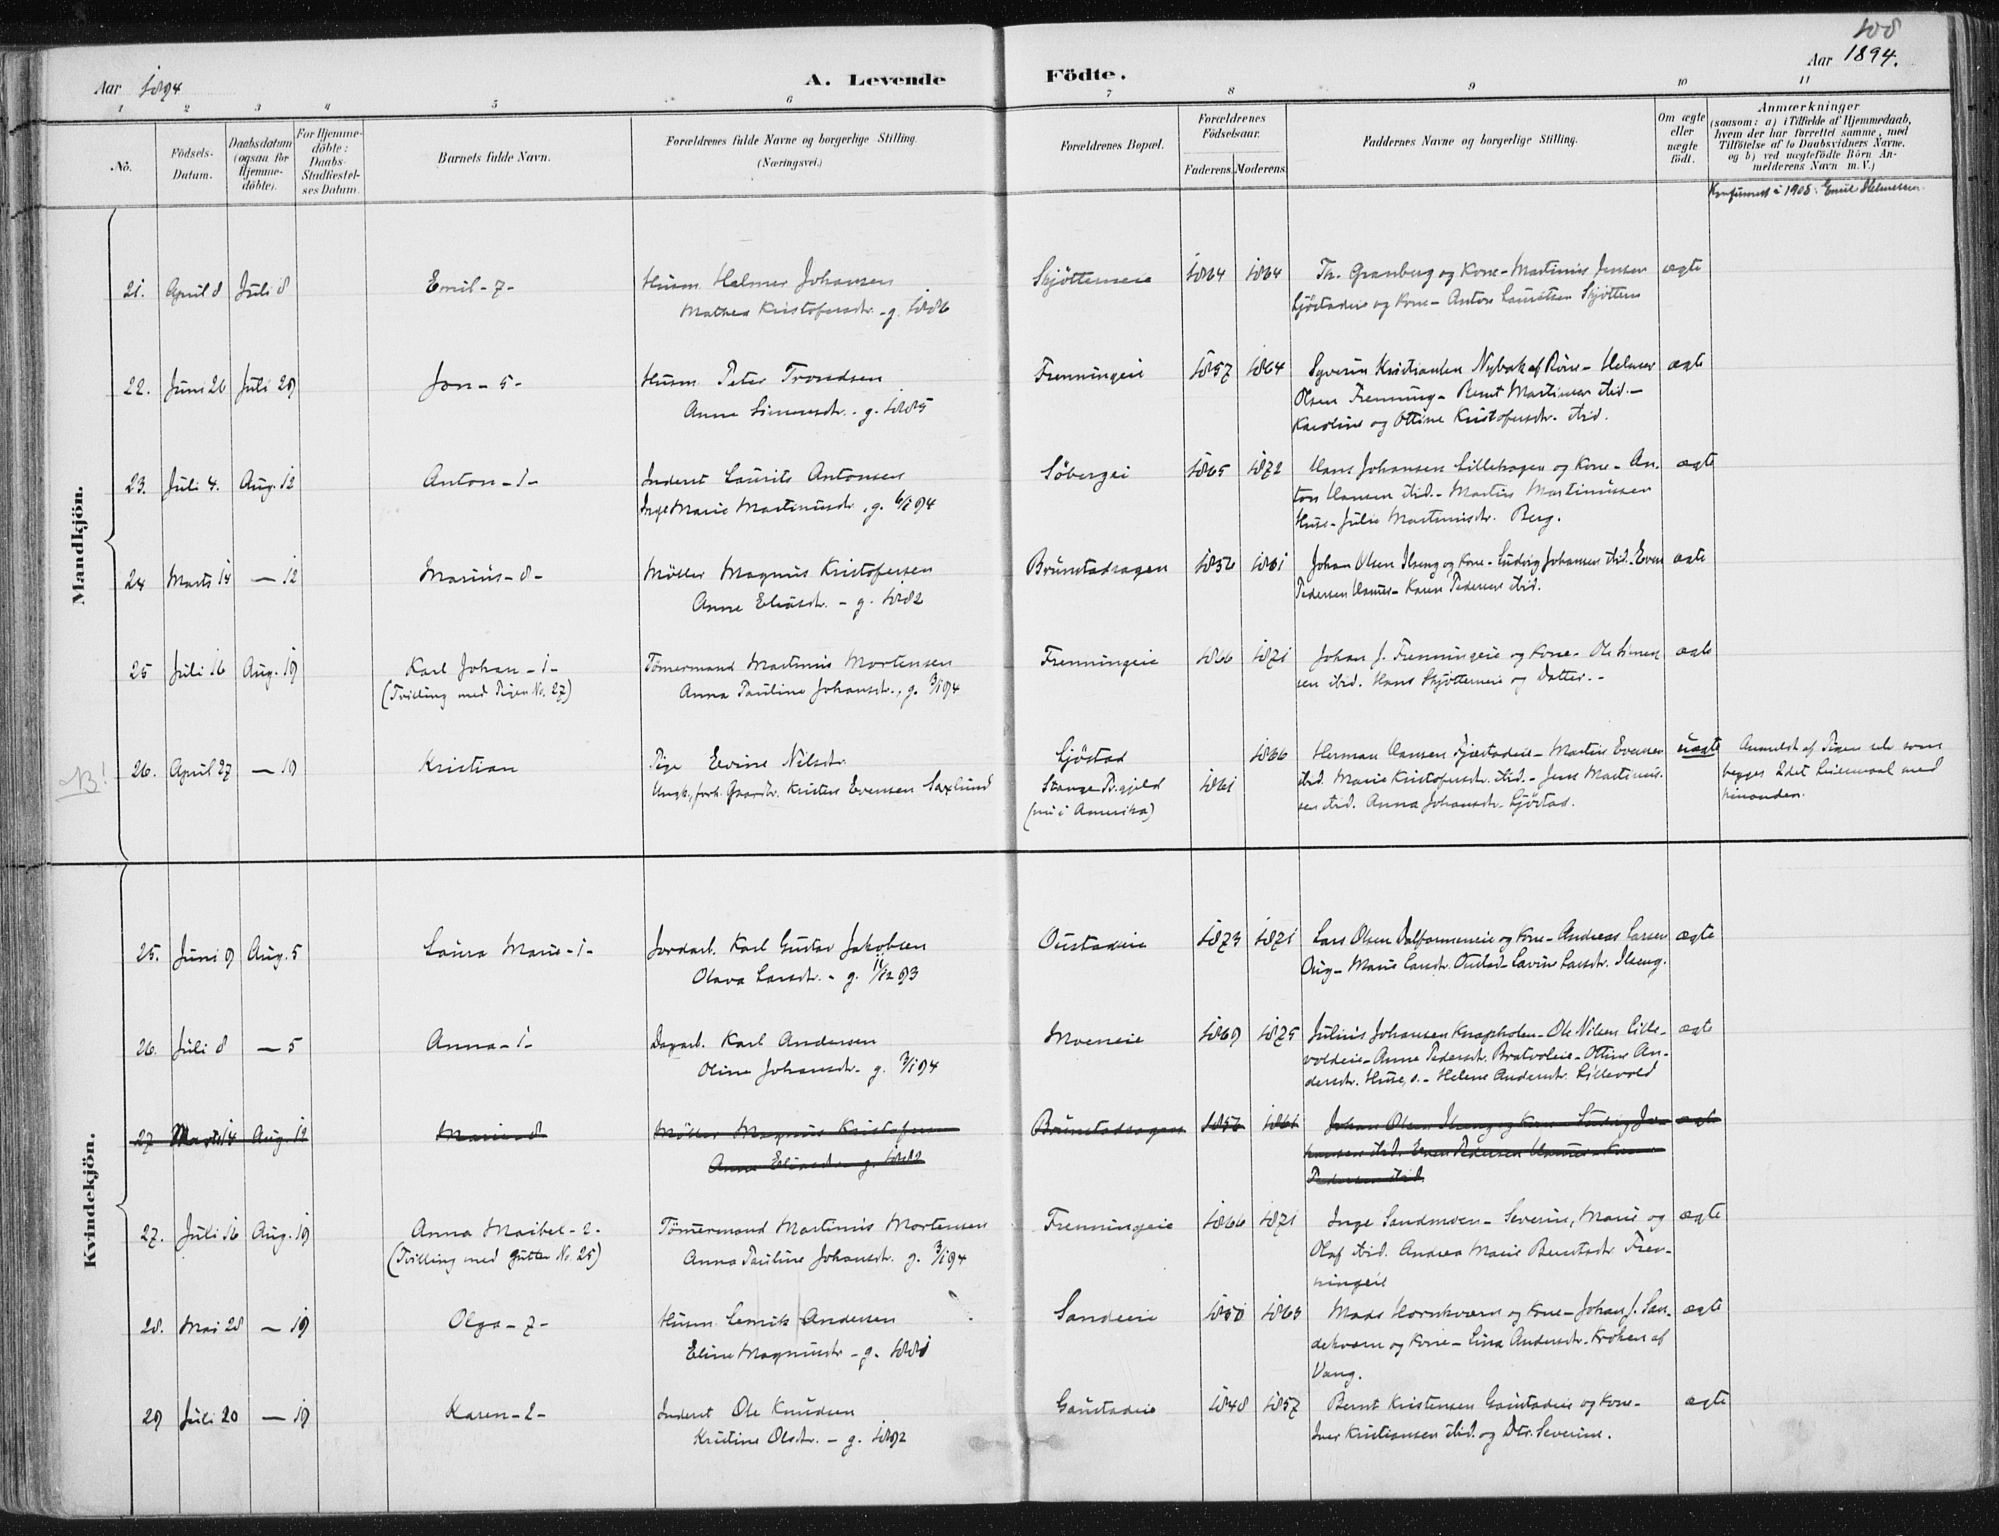 108
Aar 1894
A. Levende
Födte.
Aar 1894.
1 2 3 4 5 6 7 8 9 10 11
No.
Födsels-
Datum.
Daabsdatum
(ogsaa for
Hjemme-
döbte).
For Hjemme-
döbte:
Daabs-
Stadfæstel-
ses Datum.
Barnets fulde Navn.
Forældrenes fulde Navne og borgerlige Stilling.
(Næringsvei.)
Forældrenes Bopæl.
Forældrenes
Födselsaar.
Faderens. Moderens.
Faddernes Navne og borgerlige Stilling.
Om ægte
eller
uægte
födt.
Anmærkninger
(saasom: a) i Tilfælde af Hjemmedaab,
hvem der har forrettet samme, med
Tilföielse af to Daabsvidners Navne,
og b) ved uægtefödte Börn An-
melderens Navn m. V.)
Konfirmert i 1908. Emil Helmersen.
Mandkjön.
21. April 8 Juli 8 Emil - 7 - Husm. Helmer Johansen Skjötteneie 1864 1864 Th. Granberg og Kone - Martinus Jensen ægte
Mathea Kristofersdr. - g. 1886 Gjöstadeie og Kone - Anton Lauritsen Skjötten
22. Juni 26 Juli 29 Jon - 5 - Husm. Peter Trondsen Frenningeie 1857 1864 Syverin Kristiansen Nybak af Röne - Helmer ægte
Anne Simensdr. - g. 1885 Olsen Frenning - Bernt Martinsen ibid. -
Karoline og Ottine Kristofersdr. ibid.
23. Juli 4. Aug. 12 Anton - 1 - Inderst Laurits Antonsen Söbergei 1865 1872 Hans Johansen Lillehagen og Kone - An- ægte
Inge Marie Martinusdr., g. 6/1 94 ton Hansen ibid. - Martin Martinussen
Huse - Julie Martinusdr. Berg.
24 Marts 14 — 12 Marius - 8 - Möller Magnus Kristofersen Brunstadsagen 1856 1861 Johan Olsen Ilseng og Kone - Ludvig Johansen ibid. Even ægte
Anne Eliasdr. - g. 1882 Pedersen - Karen Pedersen ibid.
25 Juli 16 Aug. 19 Karl Johan - 1 - Tömermand Martinus Mortensen Frenningeie 1866 1871 Johan J. Frenningeie og Kone - Ole Simen- ægte
(Tvilling med Pigen No. 27) Anna Pauline Johansdr., g. 3/1 94 sen ibid. Hans Skjötteneie og Datter. -
NB!
26. April 27 — 19 Kristian Pige Evine Nilsdr. Gjöstad 1866 Herman Hansen Gjöstadeie - Martin Evensen uægte Anmeldt af Pigen selv som
Ungk., forh. Gaardbr. Kristen Evensen Saxlund Stange Pr.gjeld 1861 ibid. Marie Kristofersdr. ibid. - Jens Martinus- begges 2det Leiermaal med
(nu i Amerika) sen ibid. Anna Johansdr. Gjöstad. hinanden.
Kvindekjön.
25. Juni 9 Aug. 5 Laura Marie - 1 - Jordarb. Karl Gustav Jakobsen Oustadeie 1873 1871 Lars Olsen Dalfarmeneie og Kone - Andreas Larsen ægte
Olava Larsdr. - g. 11/12 93 Marie Larsdr. Oustad - Lavine Larsdr. Ilseng.
26. Juli 8 — 5 Anna - 1 - Dagarb. Karl Andersen Moeneie 1869 1875 Julius Johansen Knapholen - Ole Nilsen Lille- ægte
Oline Johansdr. - g. 94 voldeie - Anne Pedersdr. Bratvoleie - Ottine An-
dersdr. Huse, s. - Helene Andersdr. Lillevold
27 Marts 14 Aug. 12 Marie - 8 Möller Magnus Kristofersen Brunstadsagen 1856 1861 Johan Olsen Ilseng og Kone - Ludvig Jo- ægte
Anne Eliasdr. g. 1882 hansen ibid. Even Pedersen - Karen
Pedersen ibid.
27. Juli 16 Aug. 19 Anna Maibel - 2 - Tömermand Martinus Mortensen Frenningeie 1866 1871 Inge Sandmoen - Severin, Marie og ægte
(Tvilling med Gutten No. 25) Anna Pauline Johansdr. g. 3/1 94 Olaf ibid. Andrea Marie Berntsdr. Fren-
ningeie
28. Mai 28 — 19 Olga - 7 - Husm. Lenrik Andersen Sandeie 1850 1863 Mads Hornkværn og Kone - Johan J. San- ægte
Eline Magnusdr. - g. 1881 dekværn og Kone - Lina Andersdr. Krohen af
Vang.
29 Juli 20 — 19 Karen - 2 - Inderst Ole Knudsen Gaustadeie 1848 1857 Bernt Kristensen Gaustadeie og Kone - ægte
Kristine Olsdr. - g. 1892 Iver Kristiansen ibid. og Dtr. Severine.